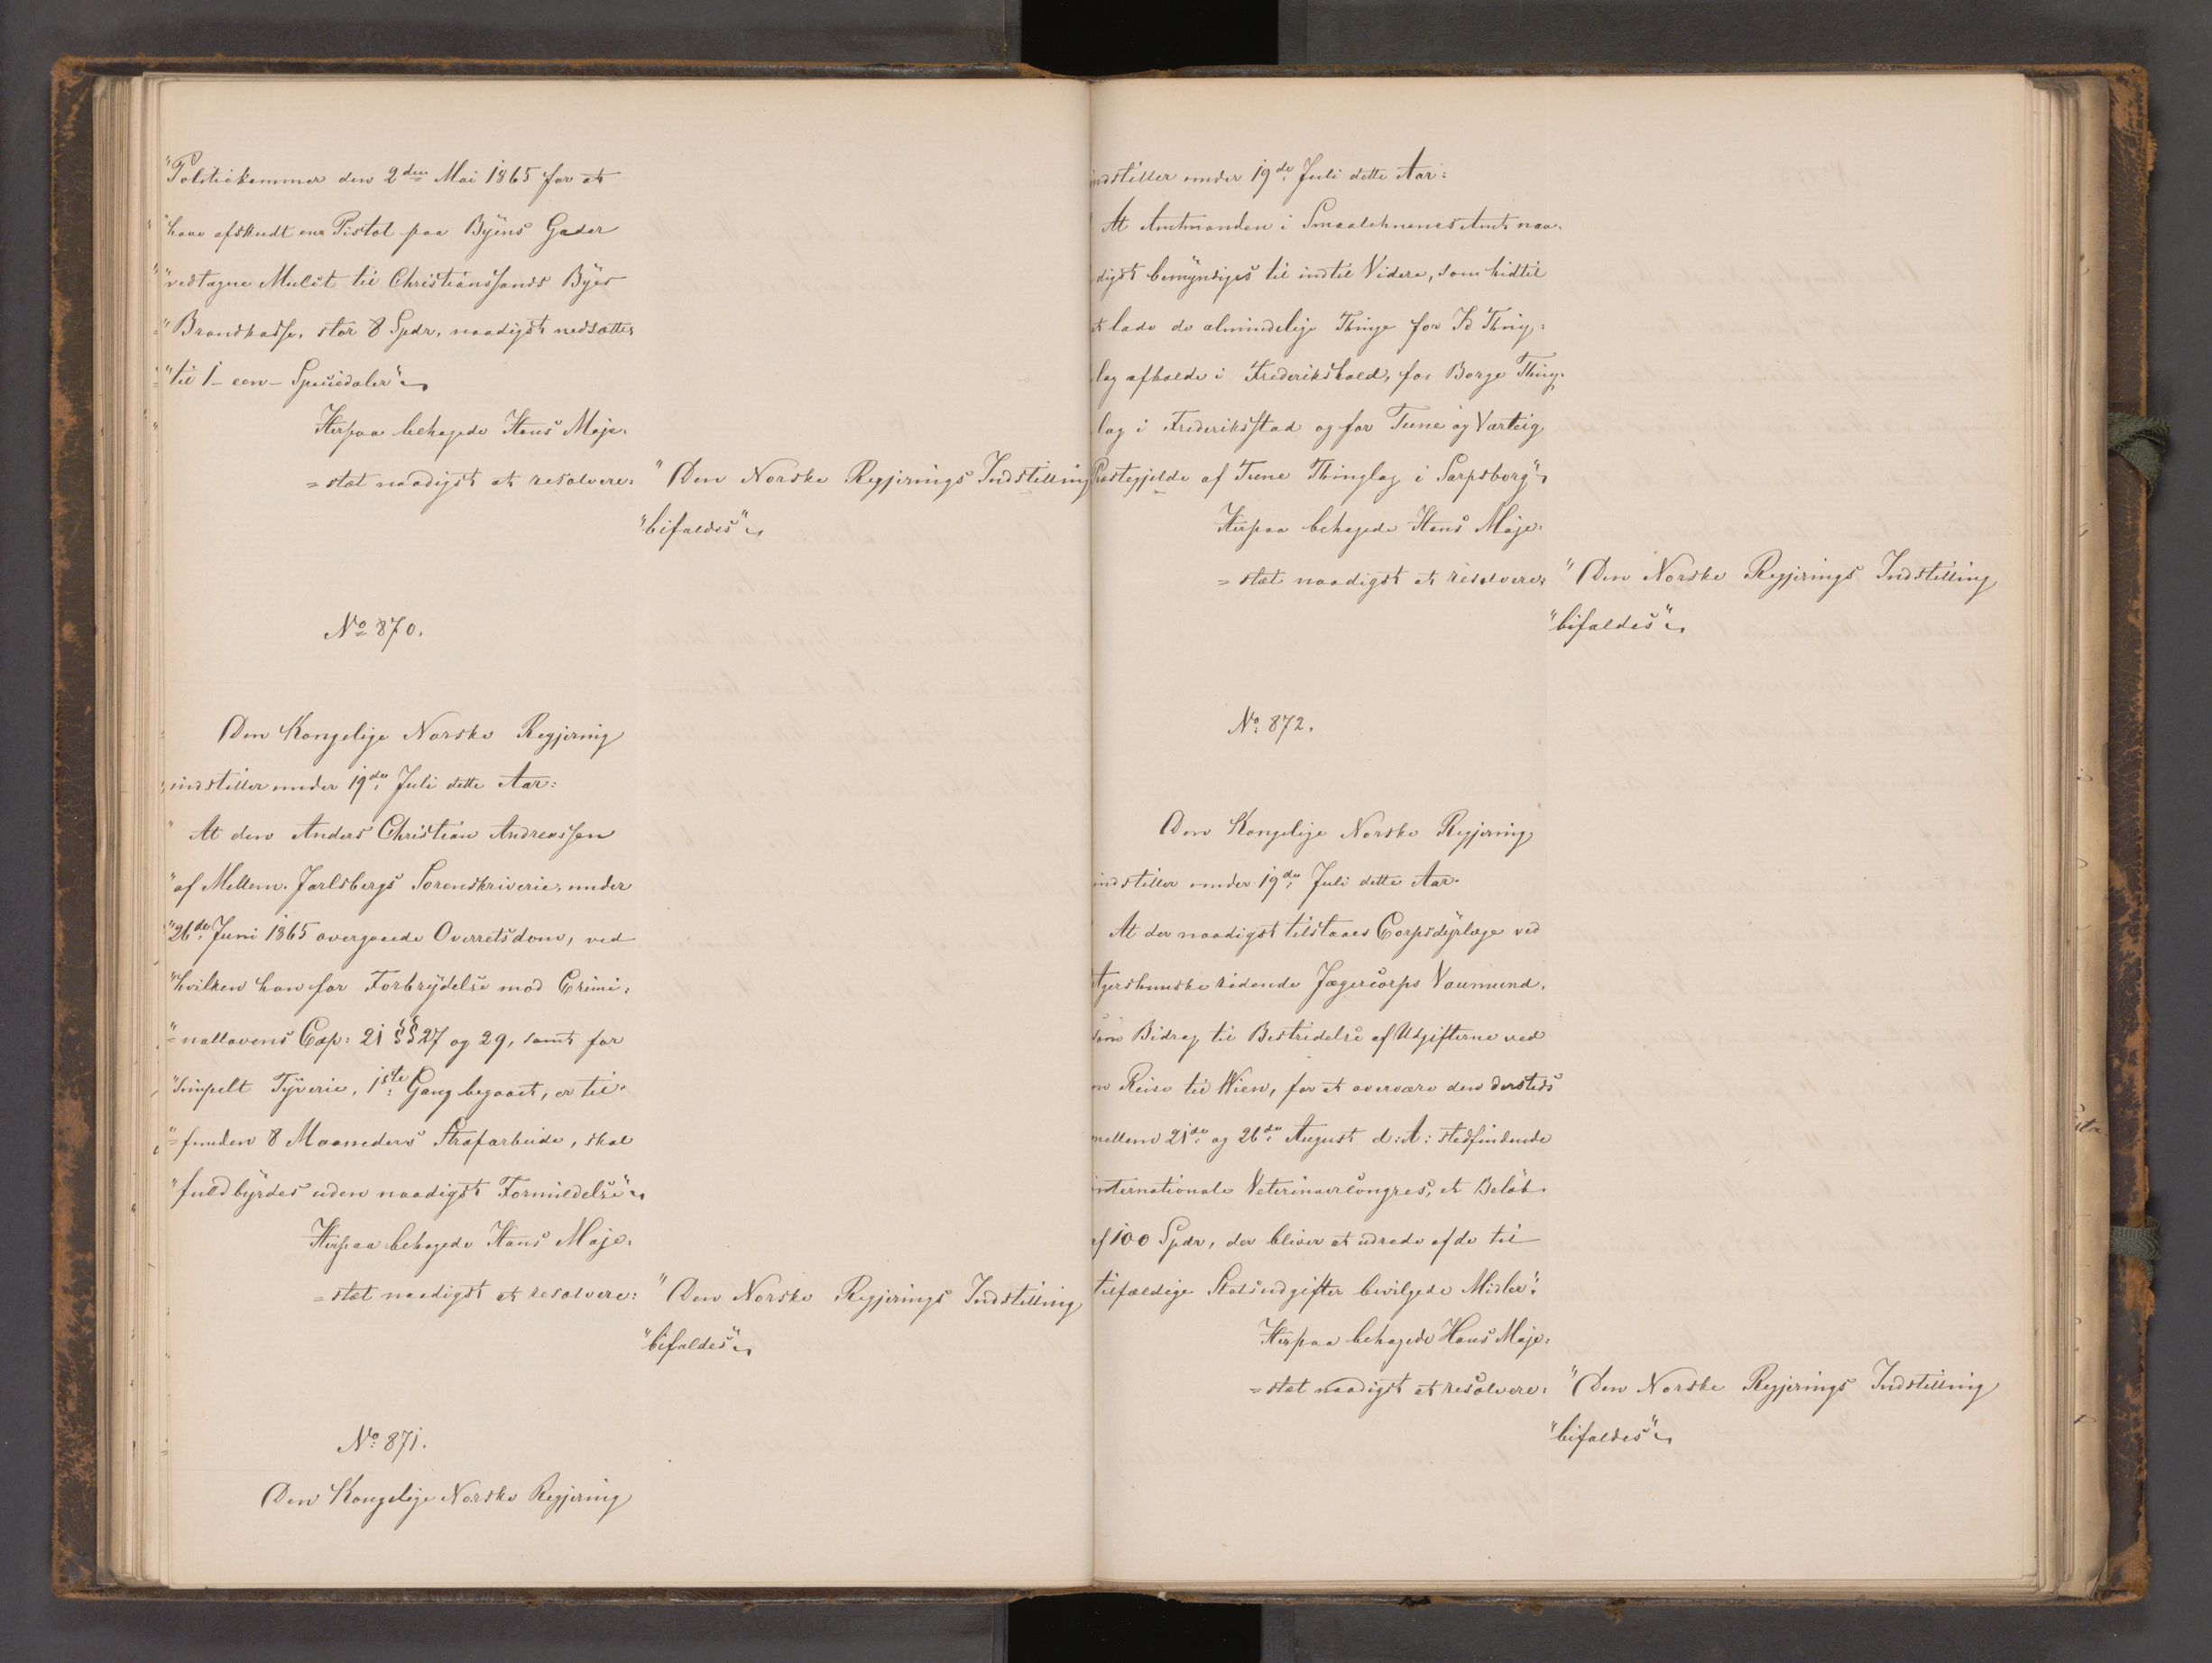 "Politiekammer den 2den Mai 1865 for at
"have afskudt en Pistol paa Byens Gader
"vedtagne Mulct til Christianssands Byes
"Brandkasse, stor 8 Spdr, naadigst nedsættes
"til 1 – een – Speciedaler"
Herpaa behagede Hans Maje-
=stæt naadigst at resolvere:
"Den Norske Regjerings Indstilling
"bifaldes"
No 870.
Den Kongelige Norske Regjering
indstiller under 19de Juli dette Aar:
"At den Anders Christian Andreassen
"af Mellem-Jarlsbergs Sorenskriverie, under
"26de Juni 1865 overgaaede Overretsdom, ved
"hvilken han for Forbrydelse mod Crimi-
"=nallovens Cap: 21 §§ 27 og 29, samt for
"simpelt Tyverie, 1ste Gang begaaet, er til-
"=funden 8 Maaneders Strafarbeide, skal
"fuldbyrdes uden naadigst Formildelse"
Herpaa behagede Hans Maje-
=stæt naadigst at resolvere:
"Den Norske Regjerings Indstilling
"bifaldes"
No 871.
Den Kongelige Norske Regjering
indstiller under 19de Juli dette Aar:
At Amtmanden i Smaalehnenes Amt naa-
digst bemyndiges til indtil Videre, som hidtil
at lade de almindelige Thinge for Id Thing-
lag afholde i Frederikshald, for Borge Thing-
lag i Frederiksstad og for Tune og Varteig
Præstegjelde af Tune Thinglag i Sarpsborg"
Herpaa behagede Hans Maje-
=stæt naadigst at resolvere:
"Den Norske Regjerings Indstilling
"bifaldes"
No 872.
Den Kongelige Norske Regjering
indstiller under 19de Juli dette Aar
At der naadigst tilstaaes Corpsdyrlæge ved
Agershusske ridende Jægercorps Vaumund,
som Bidrag til Bestridelse af Udgifterne ved
en Reise til Wien, for at overvære den dersteds
mellem 21de og 26de August d: A: stedfindende
internationale Veterinaircongres, et Beløb
af 100 Spdr, der bliver at udrede af de til
tilfældige Statsudgifter bevilgede Midler"
Herpaa behagede Hans Maje-
=stæt naadigst at resolvere:
"Den Norske Regjerings Indstilling
"bifaldes"